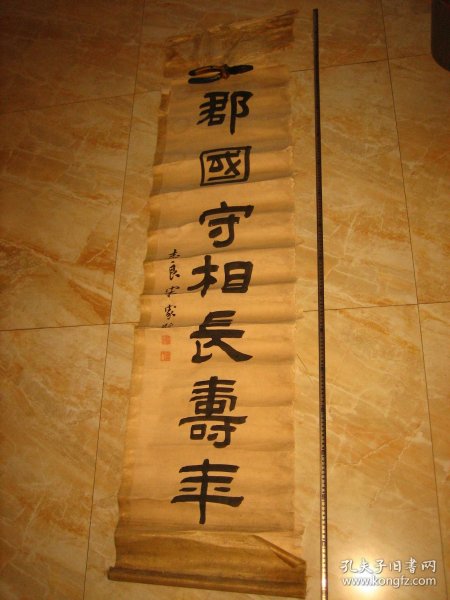 郡國守相長壽年
孔夫子旧书网
www.kongfz.com